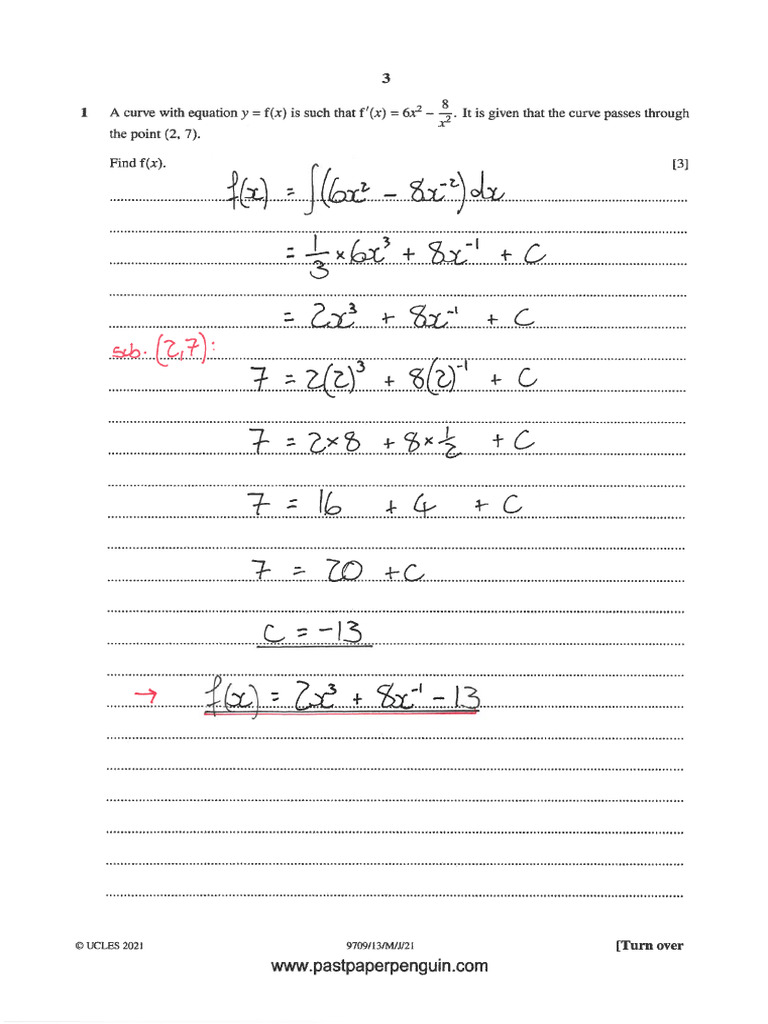 3
1 A curve with equation y = f(x) is such that f′(x) = 6x² − 8/x². It is given that the curve passes through
the point (2, 7).
Find f(x). [3]
f(x) = ∫(6x² − 8x⁻²)dx
= 1/3 × 6x³ + 8x⁻¹ + C
= 2x³ + 8x⁻¹ + C
sub. (2,7):
7 = 2(2)³ + 8(2)⁻¹ + C
7 = 2×8 + 8×1/2 + C
7 = 16 + 4 + C
7 = 20 + C
C = −13
→ f(x) = 2x³ + 8x⁻¹ − 13
© UCLES 2021 9709/13/M/J/21 [Turn over
www.pastpaperpenguin.com